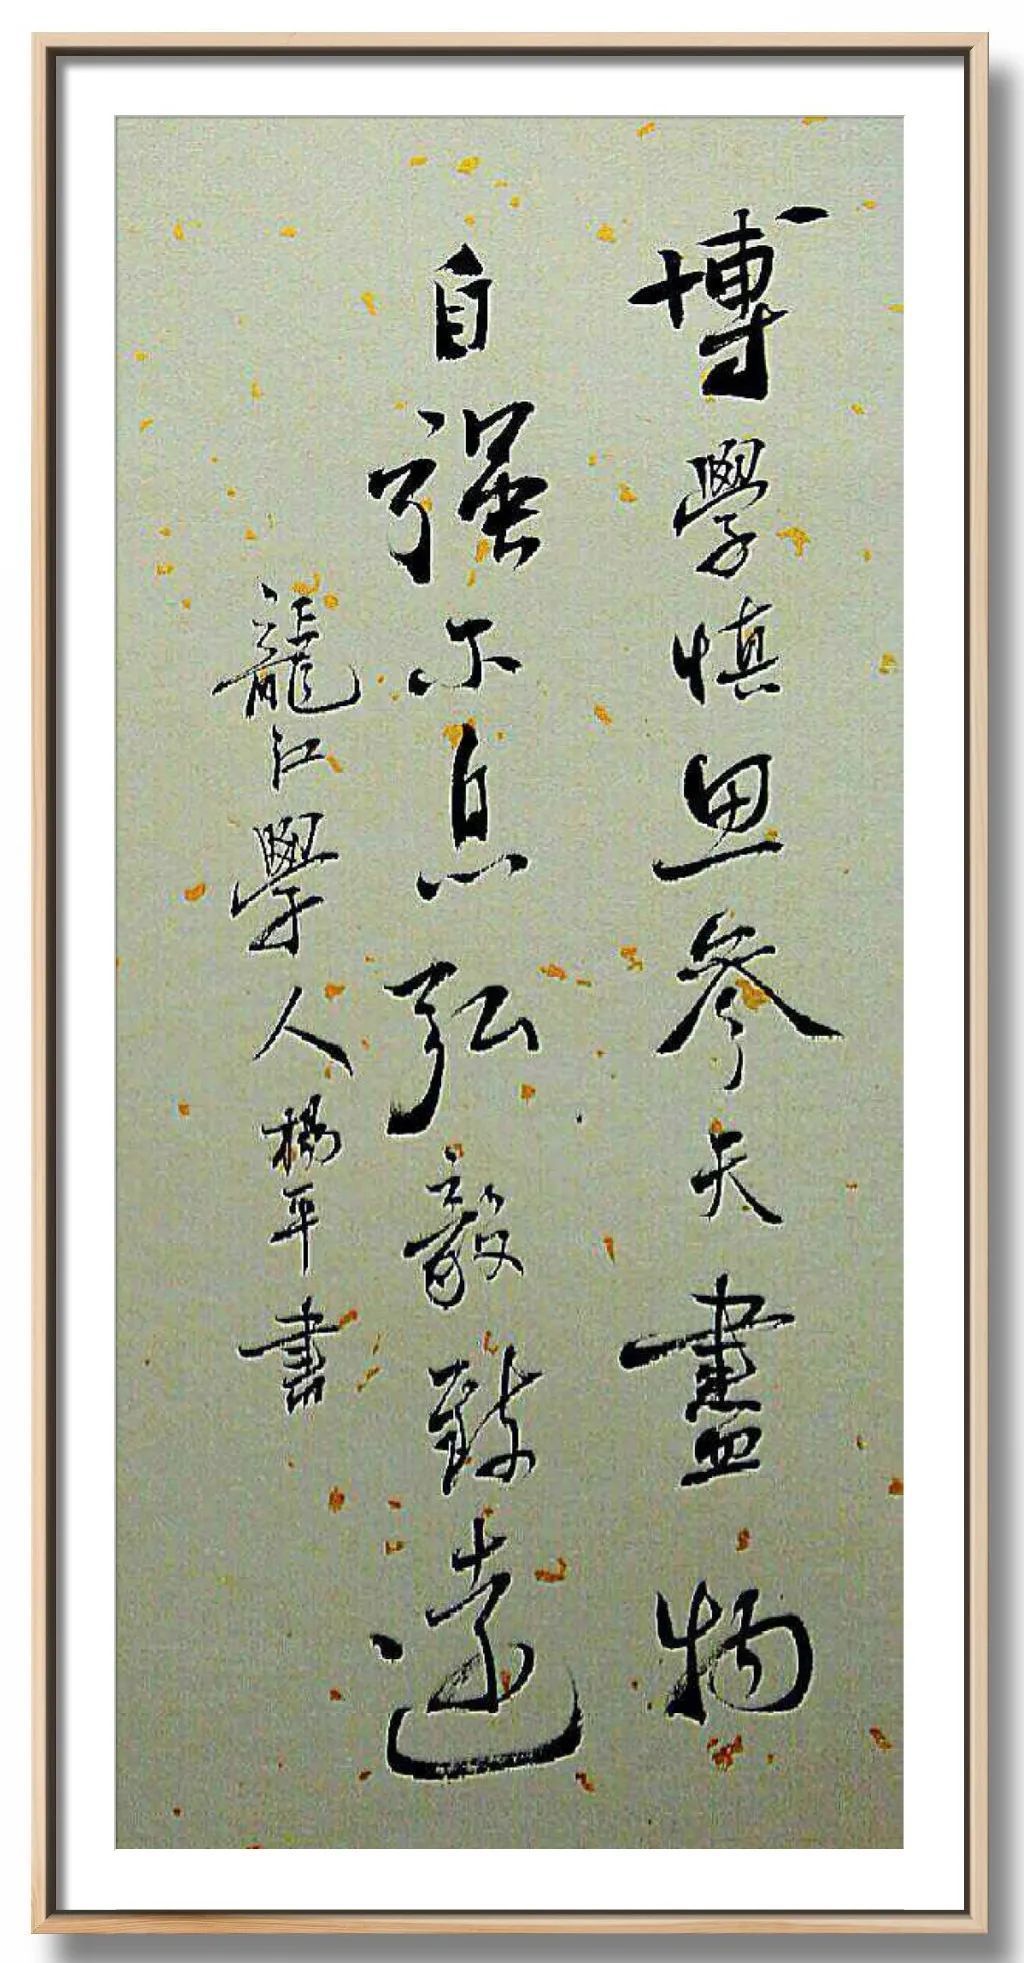 博學慎思參天盡物
自强不息弘毅致遠
龍江學人楊平書